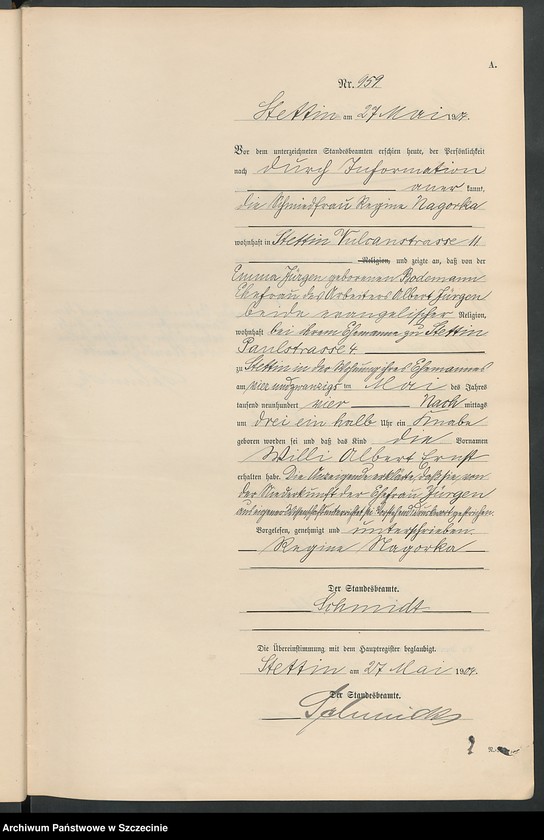 A.
Nr. 959
Stettin am 27 Mai 1904.
Vor dem unterzeichneten Standesbeamten erschien heute, der Persönlichkeit
nach durch Information
aner kannt,
die Schmiedfrau Regine Nagorka
wohnhaft in Stettin Vulcanstrasse 11
Religion, und zeigte an, daß von der
Emma Jürgen geborenen Bodemann
Ehefrau des Arbeiters Albert Jürgen
beide evangelischer Religion,
wohnhaft bei ihrem Ehemanne zu Stettin
Paulstrasse 4
zu Stettin in der Wohnung ihres Ehemannes
am vier und zwanzigsten Mai des Jahres
tausend neunhundert vier Nach mittags
um drei ein halb Uhr ein Knabe
geboren worden sei und daß das Kind die Vornamen
Willi Albert Ernst
erhalten habe. Die Anzeigende erklärte, daß sie von
der Niederkunft der Ehefrau Jürgen
aus eigener Wissenschaft unterrichtet sei.
Vorgelesen, genehmigt und unterschrieben.
Regine Nagorka
Der Standesbeamte.
Schmidt
Die Übereinstimmung mit dem Hauptregister beglaubigt.
Stettin am 27 Mai 1904.
Der Standesbeamte.
Schmidt
Archiwum Państwowe w Szczecinie